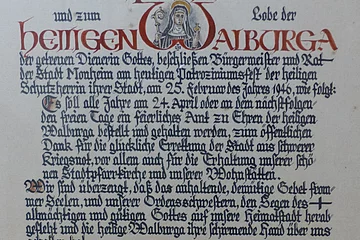 und zum Lobe der
HEILIGEN WALBURGA
der getreuen Dienerin Gottes, beschließen Bürgermeister und Rat
der Stadt Monheim am heutigen Patroziniumsfest der heiligen
Schutzherrin ihrer Stadt, am 25. Februar des Jahres 1946, wie folgt:
Es soll alle Jahre am 24. April oder an dem nächstfolgen-
den freien Tage ein feierliches Amt zu Ehren der heiligen
Walburga bestellt und gehalten werden, zum öffentlichen
Dank für die glückliche Errettung der Stadt aus schwerer
Kriegsnot, vor allen auch für die Erhaltung unserer schö-
nen Stadtpfarrkirche und unserer Wohnstätten.
Wir sind überzeugt, daß das anhaltende, demütige Gebet from-
mer Seelen, und unserer Ordensschwestern, den Segen des
allmächtigen und gütigen Gottes auf unsere Heimatstadt herab-
gefleht und die heilige Walburga ihre schirmende Hand über uns